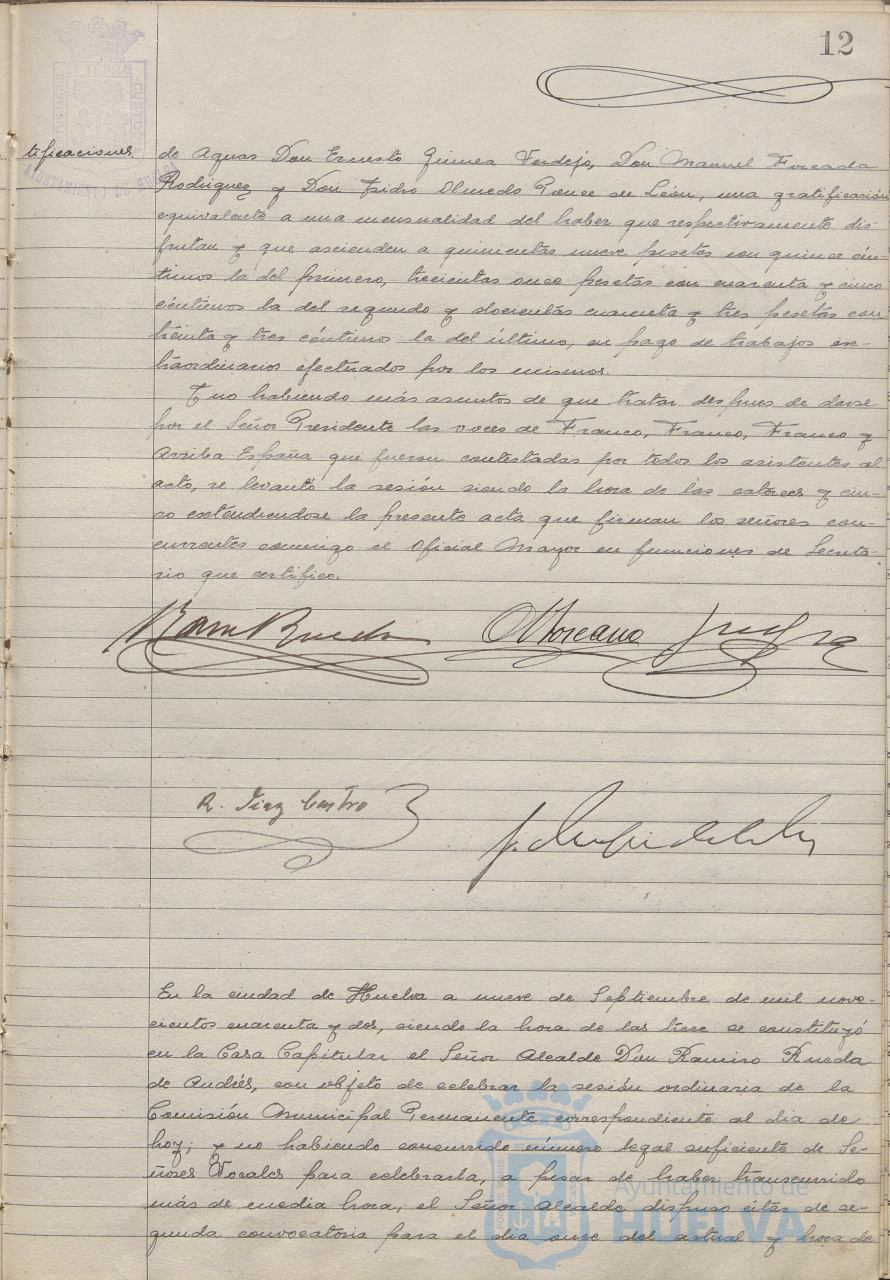 12
tificaciones.
de Aguas Don Ernesto Gimea Verdejo, Don Manuel Forcada
Rodriguez y Don Isidro Olmedo Ponce de León, una gratificación
equivalente a una mensualidad del haber que respectivamente dis-
frutan y que ascienden a quinientas nueve pesetas con quince cén-
timos la del primero, trecientas once pesetas con cuarenta y cinco
céntimos la del segundo y docientas cuarenta y tres pesetas con
treinta y tres céntimos la del último, en pago de trabajos ex-
traordinarios efectuados por los mismos.
Y no habiendo más asuntos de que tratar despues de darse
por el Señor Presidente las voces de Franco, Franco, Franco y
Arriba España que fueron contestadas por todos los asistentes al
acto, se levantó la sesión siendo la hora de las catorce y cin-
co extendiendose la presente acta que firman los señores con-
currentes conmigo el Oficial Mayor en funciones de Secreta-
rio que certifico.
Ram Rueda
R. Diaz Castro
En la ciudad de Huelva a nueve de Septiembre de mil nove-
cientos cuarenta y dos, siendo la hora de las trece se constituyó
en la Casa Capitular el Señor Alcalde Don Ramiro Rueda
de Andrés, con objeto de celebrar la sesión ordinaria de la
Comisión Municipal Permanente correspondiente al dia de
hoy; y no habiendo concurrido número legal suficiente de Se-
ñores Vocales para celebrarla, a pesar de haber transcurrido
más de media hora, el Señor Alcalde dispuso citar de se-
gunda convocatoria para el dia once del actual y hora de
Ayuntamiento de
HUELVA